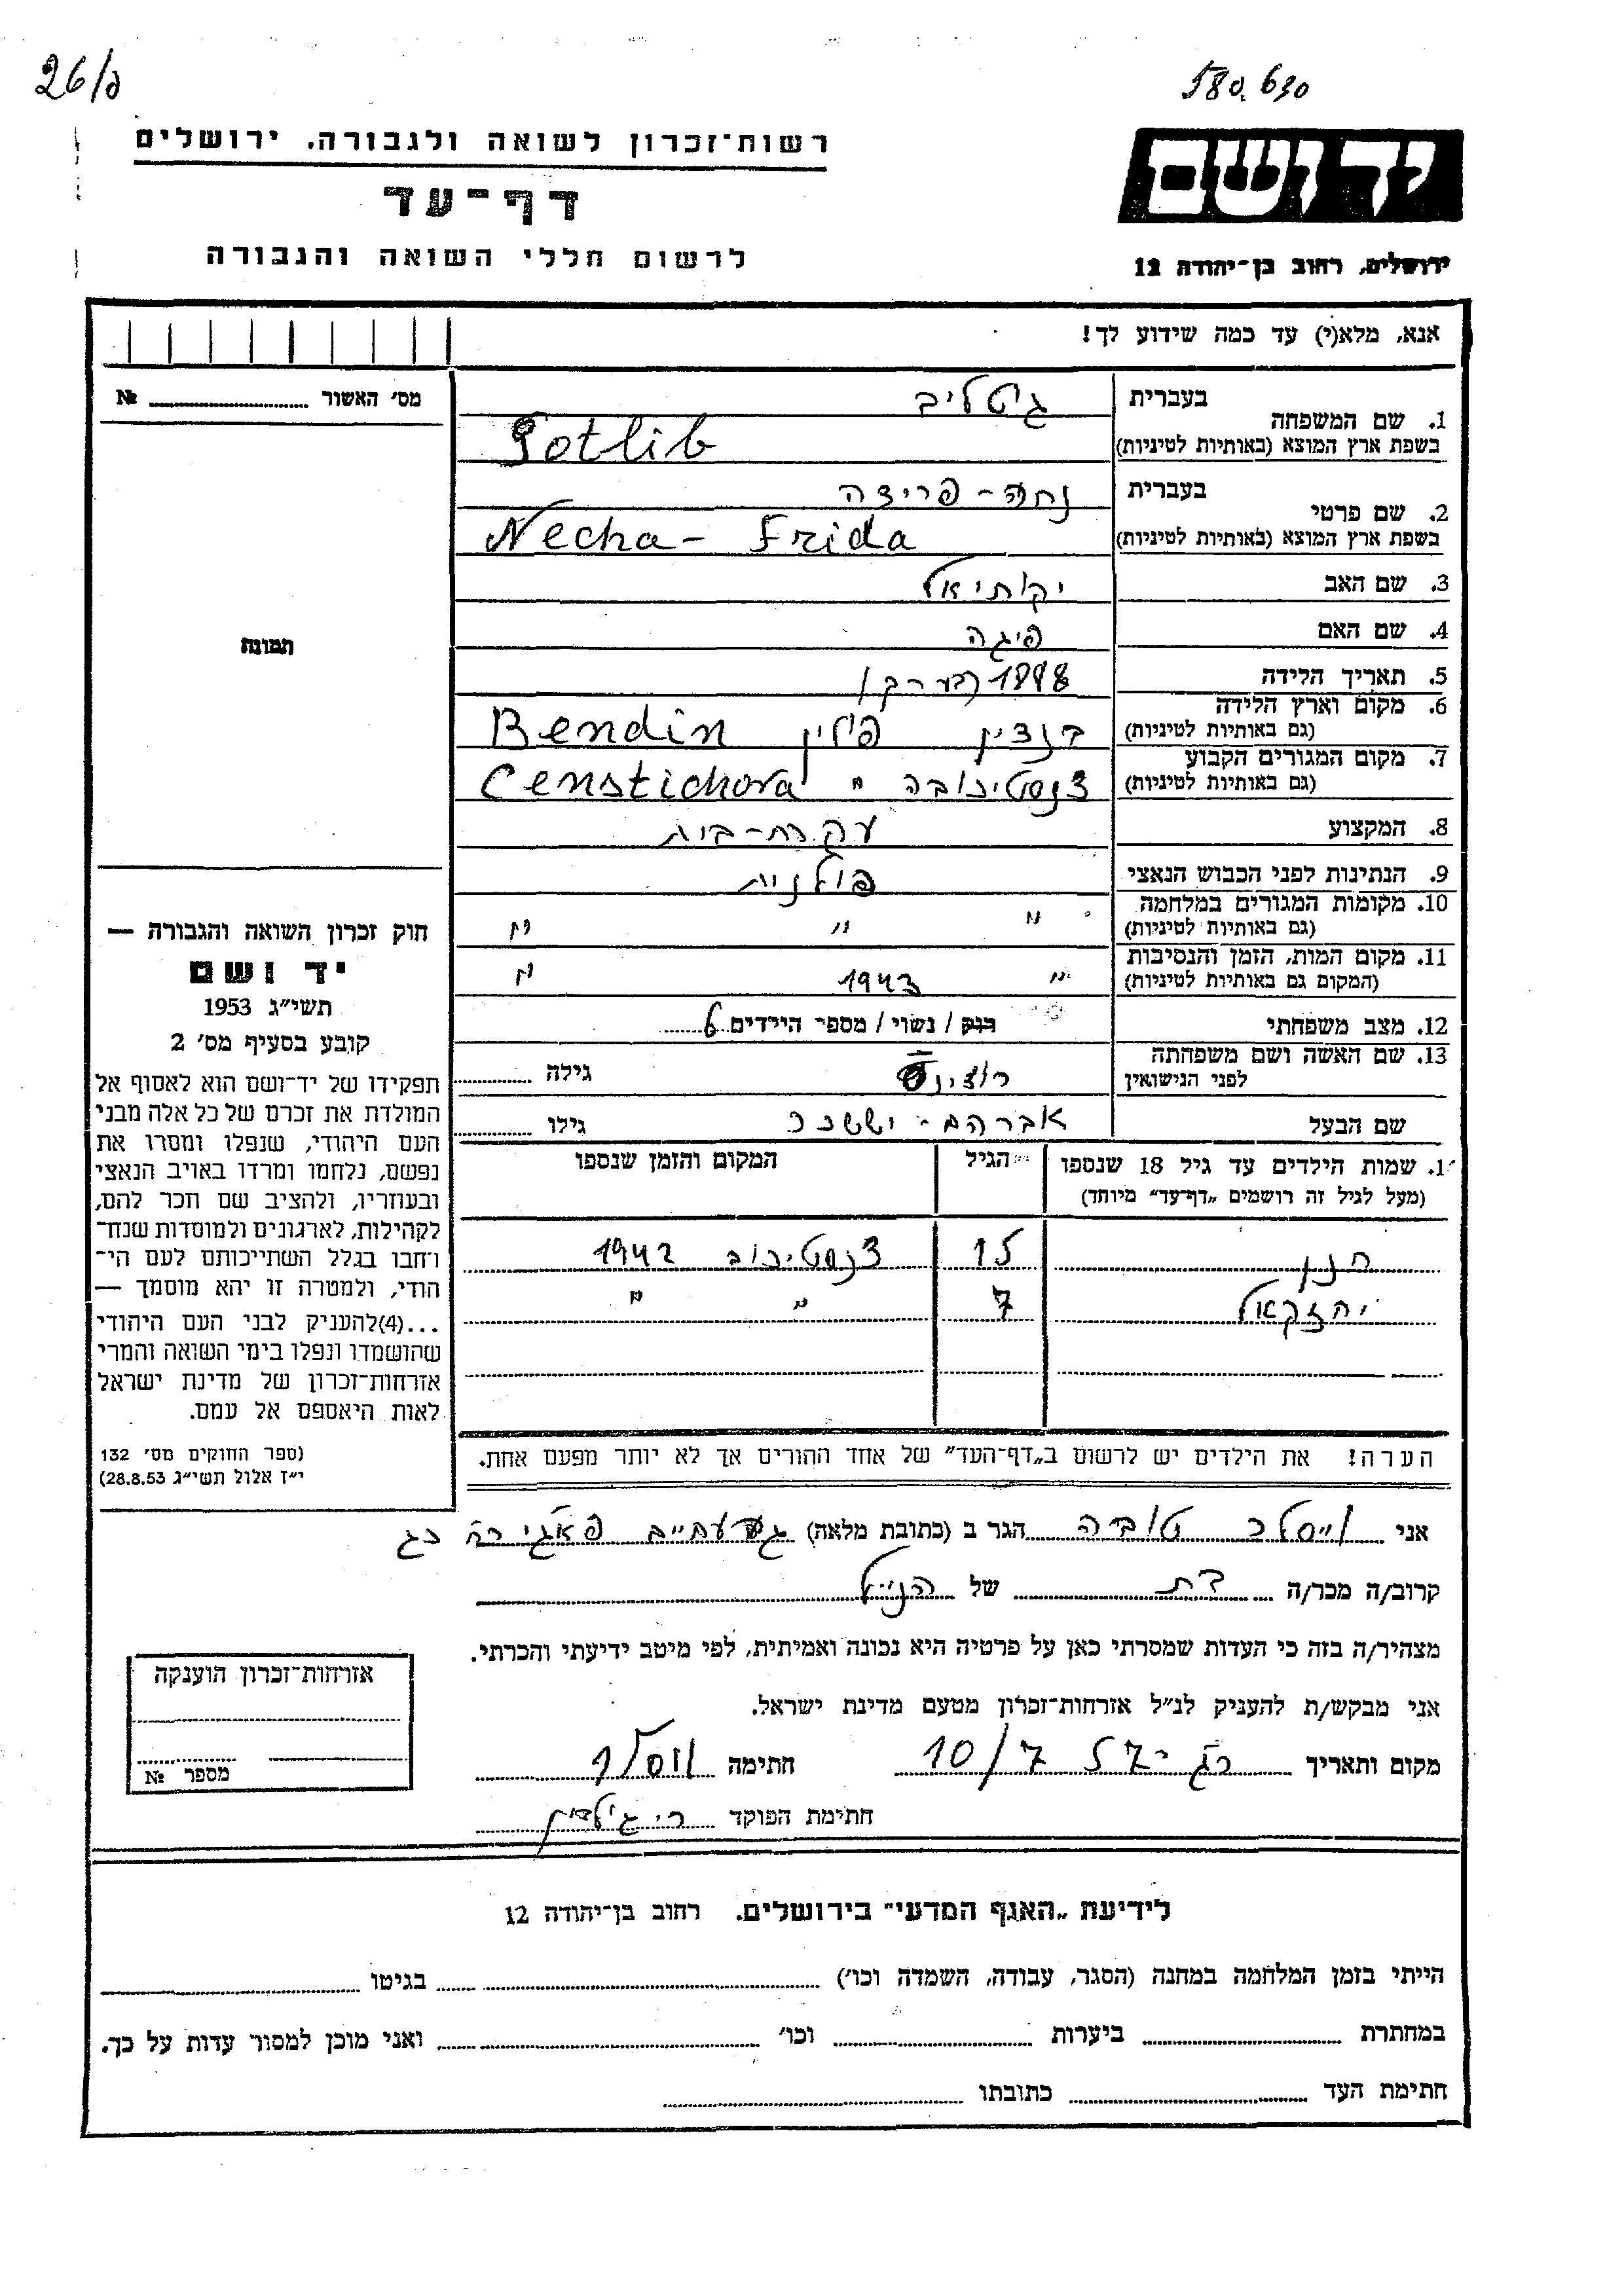 26/ג
580.630
רשות־זכרון לשואה ולגבורה. ירושלים
יד ושם
דף־עד
לרשום חללי השואה והגבורה
ירושלים, רחוב בן־יהודה 12
אנא, מלא(י) עד כמה שידוע לך!
מס' האשור № 
בעברית גוטליב
1. שם המשפחה
בשפת ארץ המוצא (באותיות לטיניות) Gotlib
בעברית נחה-פרידה
2. שם פרטי
בשפת ארץ המוצא (באותיות לטיניות) Necha - Frida
3. שם האב יקותיאל
4. שם האם פיגה
5. תאריך הלידה 1888 (בערך)
6. מקום וארץ הלידה
(גם באותיות לטיניות) בנדין פולין Bendin
7. מקום המגורים הקבוע
(גם באותיות לטיניות) צנסטיכובה " Censtichova
8. המקצוע עקרת-בית
9. הנתינות לפני הכבוש הנאצי פולנית
10. מקומות המגורים במלחמה
(גם באותיות לטיניות) " " "
11. מקום המות, הזמן והנסיבות
(המקום גם באותיות לטיניות) " 1943 "
12. מצב משפחתי רוק / נשוי / מספר הילדים 6
13. שם האשה ושם משפחתה
לפני הנישואין גילה
שם הבעל אברהם - יששכר גילו
תמונה
חוק זכרון השואה והגבורה —
יד ושם
תשי״ג 1953
קובע בסעיף מס' 2
תפקידו של יד־ושם הוא לאסוף אל
המולדת את זכרם של כל אלה מבני
העם היהודי, שנפלו ומסרו את
נפשם, נלחמו ומרדו באויב הנאצי
ובעוזריו, ולהציב שם וזכר להם,
לקהילות, לארגונים ולמוסדות שנח־
רבו בגלל השתייכותם לעם הי־
הודי, ולמטרה זו יהא מוסמך —
...(4)להעניק לבני העם היהודי
שהושמדו ונפלו בימי השואה והמרי
אזרחות־זכרון של מדינת ישראל
לאות היאספם אל עמם.
(ספר החוקים מס' 132
י״ז אלול תשי״ג 28.8.53)
1. שמות הילדים עד גיל 18 שנספו הגיל המקום והזמן שנספו
(מעל לגיל זה רושמים „דף־עד" מיוחד)
חנן 15 צנסטיכוב 1942
יחזקאל 7 " "
הערה! את הילדים יש לרשום ב„דף־העד" של אחד ההורים אך לא יותר מפעם אחת.
אני וייסלר טובה הגר ב (כתובת מלאה) גבעתיים
קרוב/ה מכר/ה בת של הנ״ל
מצהיר/ה בזה כי העדות שמסרתי כאן על פרטיה היא נכונה ואמיתית, לפי מיטב ידיעתי והכרתי.
אני מבקש/ת להעניק לנ״ל אזרחות־זכרון מטעם מדינת ישראל.
מקום ותאריך רג 10/7 - 57 חתימה
חתימת הפוקד
אזרחות־זכרון הוענקה
מספר №
לידיעת „האגף המדעי" בירושלים. רחוב בן־יהודה 12
הייתי בזמן המלחמה במחנה (הסגר, עבודה, השמדה וכו') בגיטו
במחתרת ביערות וכו' ואני מוכן למסור עדות על כך.
חתימת העד כתובתו